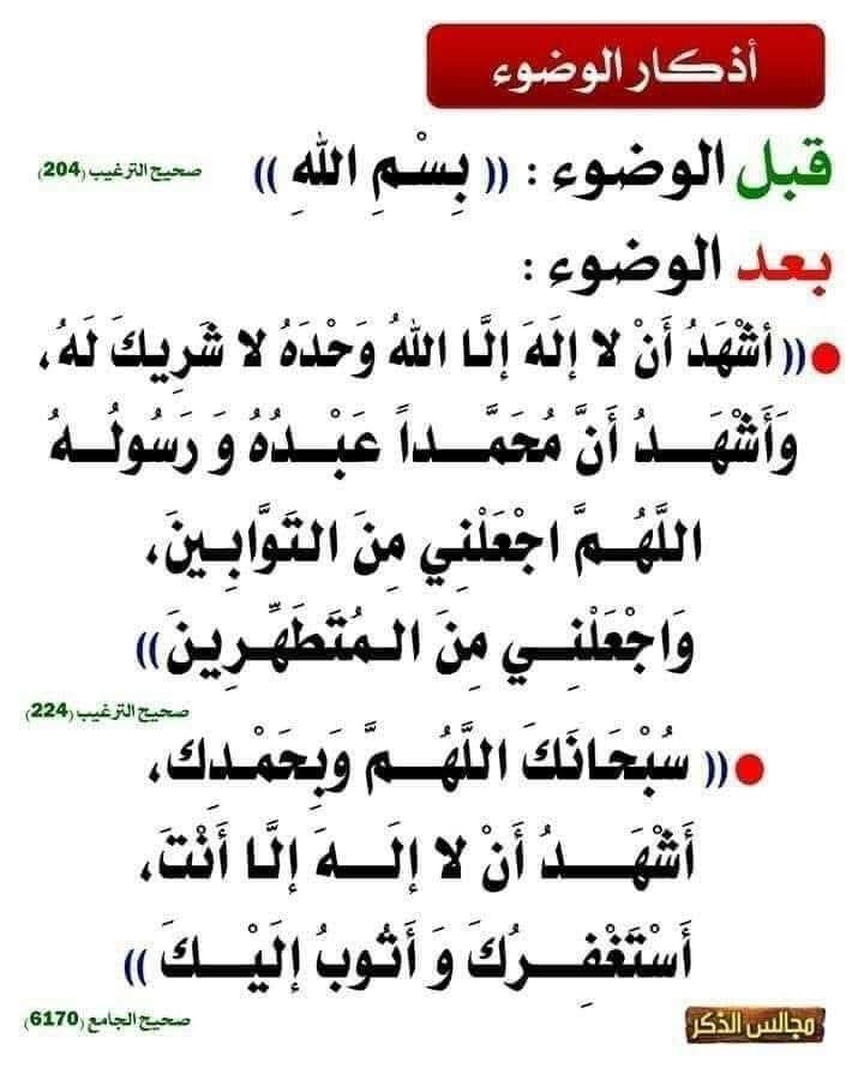 أذكار الوضوء
قبل الوضوء : (( بِسْمِ اللهِ )) صحيح الترغيب (204)
بعد الوضوء :
(( أشْهَدُ أَنْ لا إلَهَ إلَّا اللهُ وَحْدَهُ لا شَرِيكَ لَهُ،
وَأَشْهَـــدُ أَنَّ مُحَمَّـــداً عَبْـــدُهُ وَ رَسُولُـــهُ
اللَّهُـــمَّ اجْعَلْنِي مِنَ التَوَّابِـينَ،
وَاجْعَلْنِـــي مِنَ الـمُتَطَهِّـرِينَ ))
صحيح الترغيب (224)
(( سُبْحَانَكَ اللَّهُـــمَّ وَبِحَمْـدِكَ،
أَشْهَـــدُ أَنْ لا إلَـــهَ إلَّا أَنْتَ،
أَسْتَغْفِـــرُكَ وَ أَتُوبُ إلَيْـــكَ ))
صحيح الجامع (6170)
مجالس الذكر